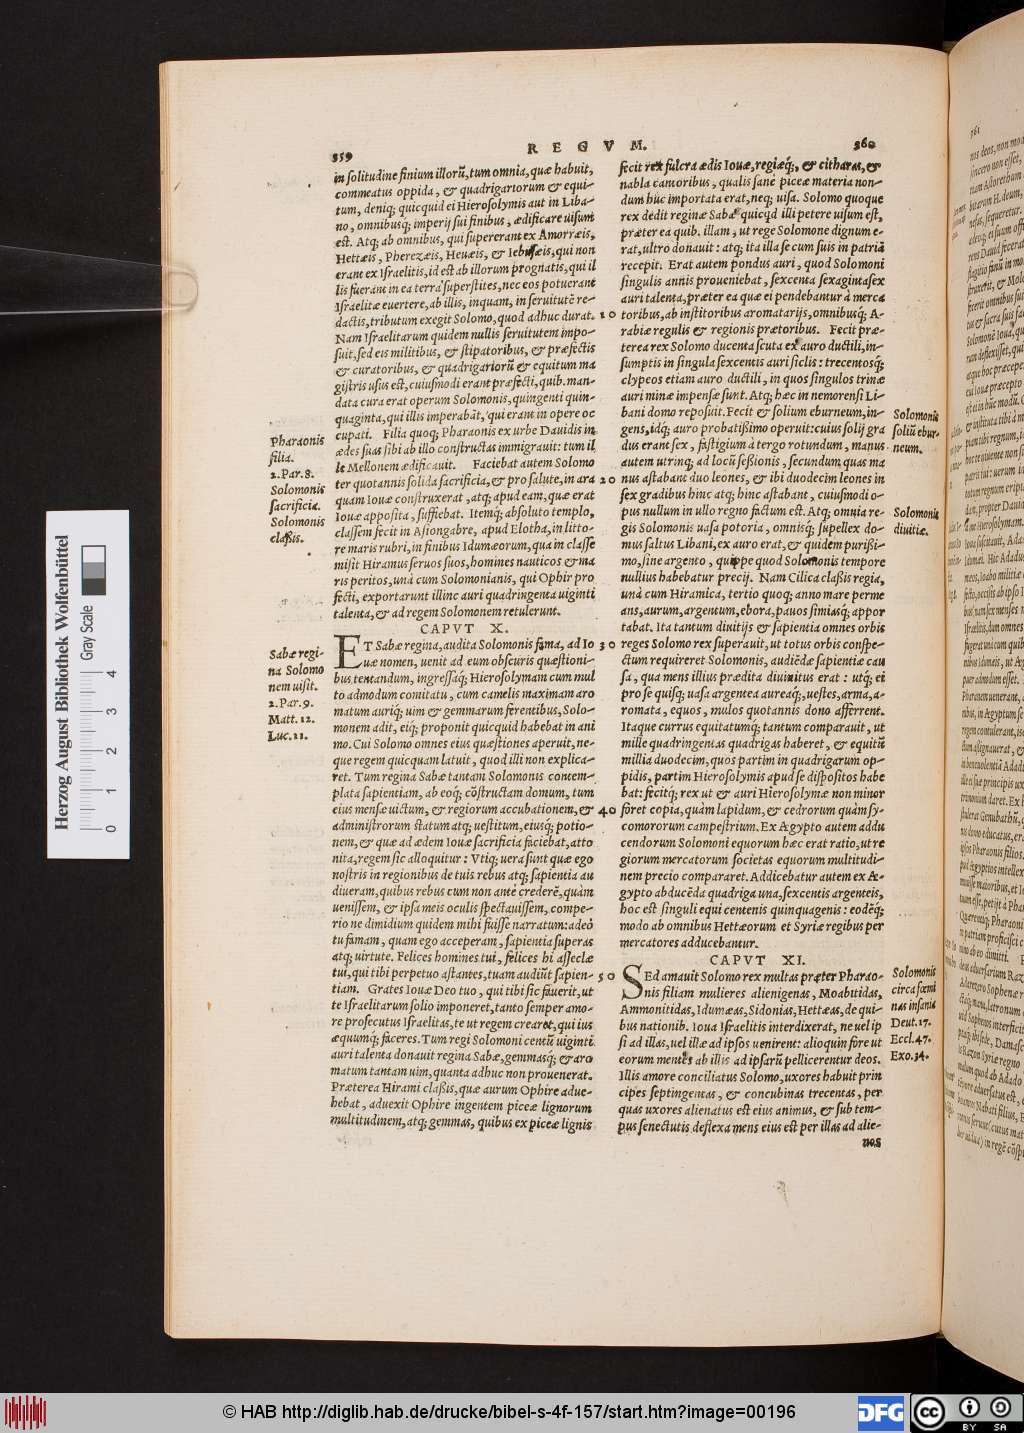 REGVM.
359
in solitudine finium illorũ, tum omnia, quæ habuit,
commeatus oppida, & quadrigariorum & equi-
tum, deniq; quicquid ei Hierosolymis aut in Liba-
no, omnibusq; imperij sui finibus, ædificare uisum
est. Atq; ab omnibus, qui supererant ex Amorræis,
Hettæis, Pherezæis, Heuæis, & Iebusæis, qui non
erant ex Israelitis, id est ab illorum prognatis, qui il
lis fuerant in ea terra superstites, nec eos potuerant
Israelitæ euertere, ab illis, inquam, in seruitutē re-
dactis, tributum exegit Solomo, quod adhuc durat.
Nam Israelitarum quidem nullis seruitutem impo-
suit, sed eis militibus, & stipatoribus, & præfectis
& curatoribus, & quadrigariorũ & equitum ma
gistris usus est, cuiusmodi erant præfecti, quib. man-
data cura erat operum Solomonis, quingenti quin-
quaginta, qui illis imperabãt, qui erant in opere oc
cupati. Filia quoq; Pharaonis ex urbe Dauidis in
ædes suas sibi ab illo constructas immigrauit: tum il
le Mellonem ædificauit. Faciebat autem Solomo
ter quotannis solida sacrificia, & pro salute, in ara
quam Iouæ construxerat, atq; apud eam, quæ erat
Iouæ apposita, suffiebat. Itemq; absoluto templo,
classem fecit in Asiongabre, apud Elotha, in litto-
re maris rubri, in finibus Idumæorum, qua in classe
misit Hiramus seruos suos, homines nauticos & ma
ris peritos, unà cum Solomonianis, qui Ophir pro
fecti, exportarunt illinc auri quadringenta uiginti
talenta, & ad regem Solomonem retulerunt.
CAPVT X.
ET Sabæ regina, audita Solomonis fama, ad Io
uæ nomen, uenit ad eum obscuris quæstioni-
bus tentandum, ingressaq; Hierosolymam cum mul
to admodum comitatu, cum camelis maximam aro
matum auriq; uim & gemmarum ferentibus, Solo-
monem adit, eiq; proponit quicquid habebat in ani
mo. Cui Solomo omnes eius quæstiones aperuit, ne-
que regem quicquam latuit, quod illi non explica-
ret. Tum regina Sabæ tantam Solomonis contem-
plata sapientiam, ab eoq; cõstructam domum, tum
eius mensæ uictum, & regiorum accubationem, &
administrorum statum atq; uestitum, eiusq; potio-
nem, & quæ ad ædem Iouæ sacrificia faciebat, atto
nita, regem sic alloquitur: Vtiq; uera sunt quæ ego
nostris in regionibus de tuis rebus atq; sapientia au
diueram, quibus rebus cum non antè crederē, quàm
uenissem, & ipsa meis oculis spectauissem, compe-
rio ne dimidium quidem mihi fuisse narratum: adeò
tu famam, quam ego acceperam, sapientia superas
atq; uirtute. Felices homines tui, felices hi asseclæ
tui, qui tibi perpetuo astantes, tuam audiũt sapien-
tiam. Grates Iouæ Deo tuo, qui tibi sic fauerit, ut
te Israelitarum solio imponeret, tanto semper amo-
re prosecutus Israelitas, te ut regem crearet, qui ius
æquumq; faceres. Tum regi Solomoni centũ uiginti
auri talenta donauit regina Sabæ, gemmasq; & aro
matum tantam uim, quanta adhuc non prouenerat.
Præterea Hirami classis, quæ aurum Ophire adue-
hebat, aduexit Ophire ingentem piceæ lignorum
multitudinem, atq; gemmas, quibus ex piceæ lignis
Pharaonis
filia.
2. Par. 8.
Solomonis
sacrificia.
Solomonis
classis.
Sabæ regi-
na Solomo
nem uisit.
2. Par. 9.
Matt. 12.
Luc. 11.
10
20
30
40
50
360
fecit rex fulcra ædis Iouæ, regiæq;, & citharas, &
nabla cantoribus, qualis sanè piceæ materia non-
dum huc importata erat, neq; uisa. Solomo quoque
rex dedit reginæ Sabæ quicqd illi petere uisum est,
præter ea quib. illam, ut rege Solomone dignum e-
rat, ultro donauit: atq; ita illa se cum suis in patriã
recepit. Erat autem pondus auri, quod Solomoni
singulis annis proueniebat, sexcenta sexagintasex
auri talenta, præter ea quæ ei pendebantur à merca
toribus, ab institoribus aromatarijs, omnibusq; A-
rabiæ regulis & regionis prætoribus. Fecit præ-
terea rex Solomo ducenta scuta ex auro ductili, in-
sumptis in singula sexcentis auri siclis: trecentosq;
clypeos etiam auro ductili, in quos singulos trinæ
auri minæ impensæ sunt. Atq; hæc in nemorensi Li-
bani domo reposuit. Fecit & solium eburneum, in-
gens, idq; auro probatissimo operuit: cuius solij gra
dus erant sex, fastigium à tergo rotundum, manus
autem utrinq; ad locũ sessionis, secundum quas ma
nus astabant duo leones, & ibi duodecim leones in
sex gradibus hinc atq; hinc astabant, cuiusmodi o-
pus nullum in ullo regno factum est. Atq; omnia re-
gis Solomonis uasa potoria, omnisq; supellex do-
mus saltus Libani, ex auro erat, & quidem purissi-
mo, sine argento, quippe quod Solomonis tempore
nullius habebatur precij. Nam Cilica classis regia,
unà cum Hiramica, tertio quoq; anno mare perme
ans, aurum, argentum, ebora, pauos simiasq; appor
tabat. Ita tantum diuitijs & sapientia omnes orbis
reges Solomo rex superauit, ut totus orbis conspe-
ctum requireret Solomonis, audiēdæ sapientiæ cau
sa, qua mens illius prædita diuinitus erat: utq; ei
pro se quisq; uasa argentea aureaq;, uestes, arma, a-
romata, equos, mulos quotannis dono afferrent.
Itaque currus equitatumq; tantum comparauit, ut
mille quadringentas quadrigas haberet, & equitũ
millia duodecim, quos partim in quadrigarum op-
pidis, partim Hierosolymis apud se dispositos habe
bat: fecitq; rex ut & auri Hierosolymæ non minor
foret copia, quàm lapidum, & cedrorum quàm sy-
comororum campestrium. Ex Ægypto autem addu
cendorum Solomoni equorum hæc erat ratio, ut re
giorum mercatorum societas equorum multitudi-
nem precio compararet. Addicebatur autem ex Æ-
gypto abducēda quadriga una, sexcentis argenteis,
hoc est singuli equi centenis quinquagenis: eodēq;
modo ab omnibus Hettæorum et Syriæ regibus per
mercatores adducebantur.
CAPVT XI.
SEd amauit Solomo rex multas præter Pharao-
nis filiam mulieres alienigenas, Moabitidas,
Ammonitidas, Idumæas, Sidonias, Hettæas, de qui-
bus nationib. Ioua Israelitis interdixerat, ne uel ip
si ad illas, uel illæ ad ipsos uenirent: alioquin fore ut
eorum mentes ab illis ad ipsarũ pellicerentur deos.
Illis amore conciliatus Solomo, uxores habuit prin
cipes septingentas, & concubinas trecentas, per
quas uxores alienatus est eius animus, & sub tem-
pus senectutis deflexa mens eius est per illas ad alie-
nos
Solomonis
soliũ ebur-
neum.
Solomonis
diuitiæ.
Solomonis
circa fœmi
nas insania
Deut. 17.
Eccl. 47.
Exo. 34.
361
Herzog August Bibliothek Wolfenbüttel
Gray Scale
0 1 2 3 4
© HAB http://diglib.hab.de/drucke/bibel-s-4f-157/start.htm?image=00196
DFG
cc BY SA